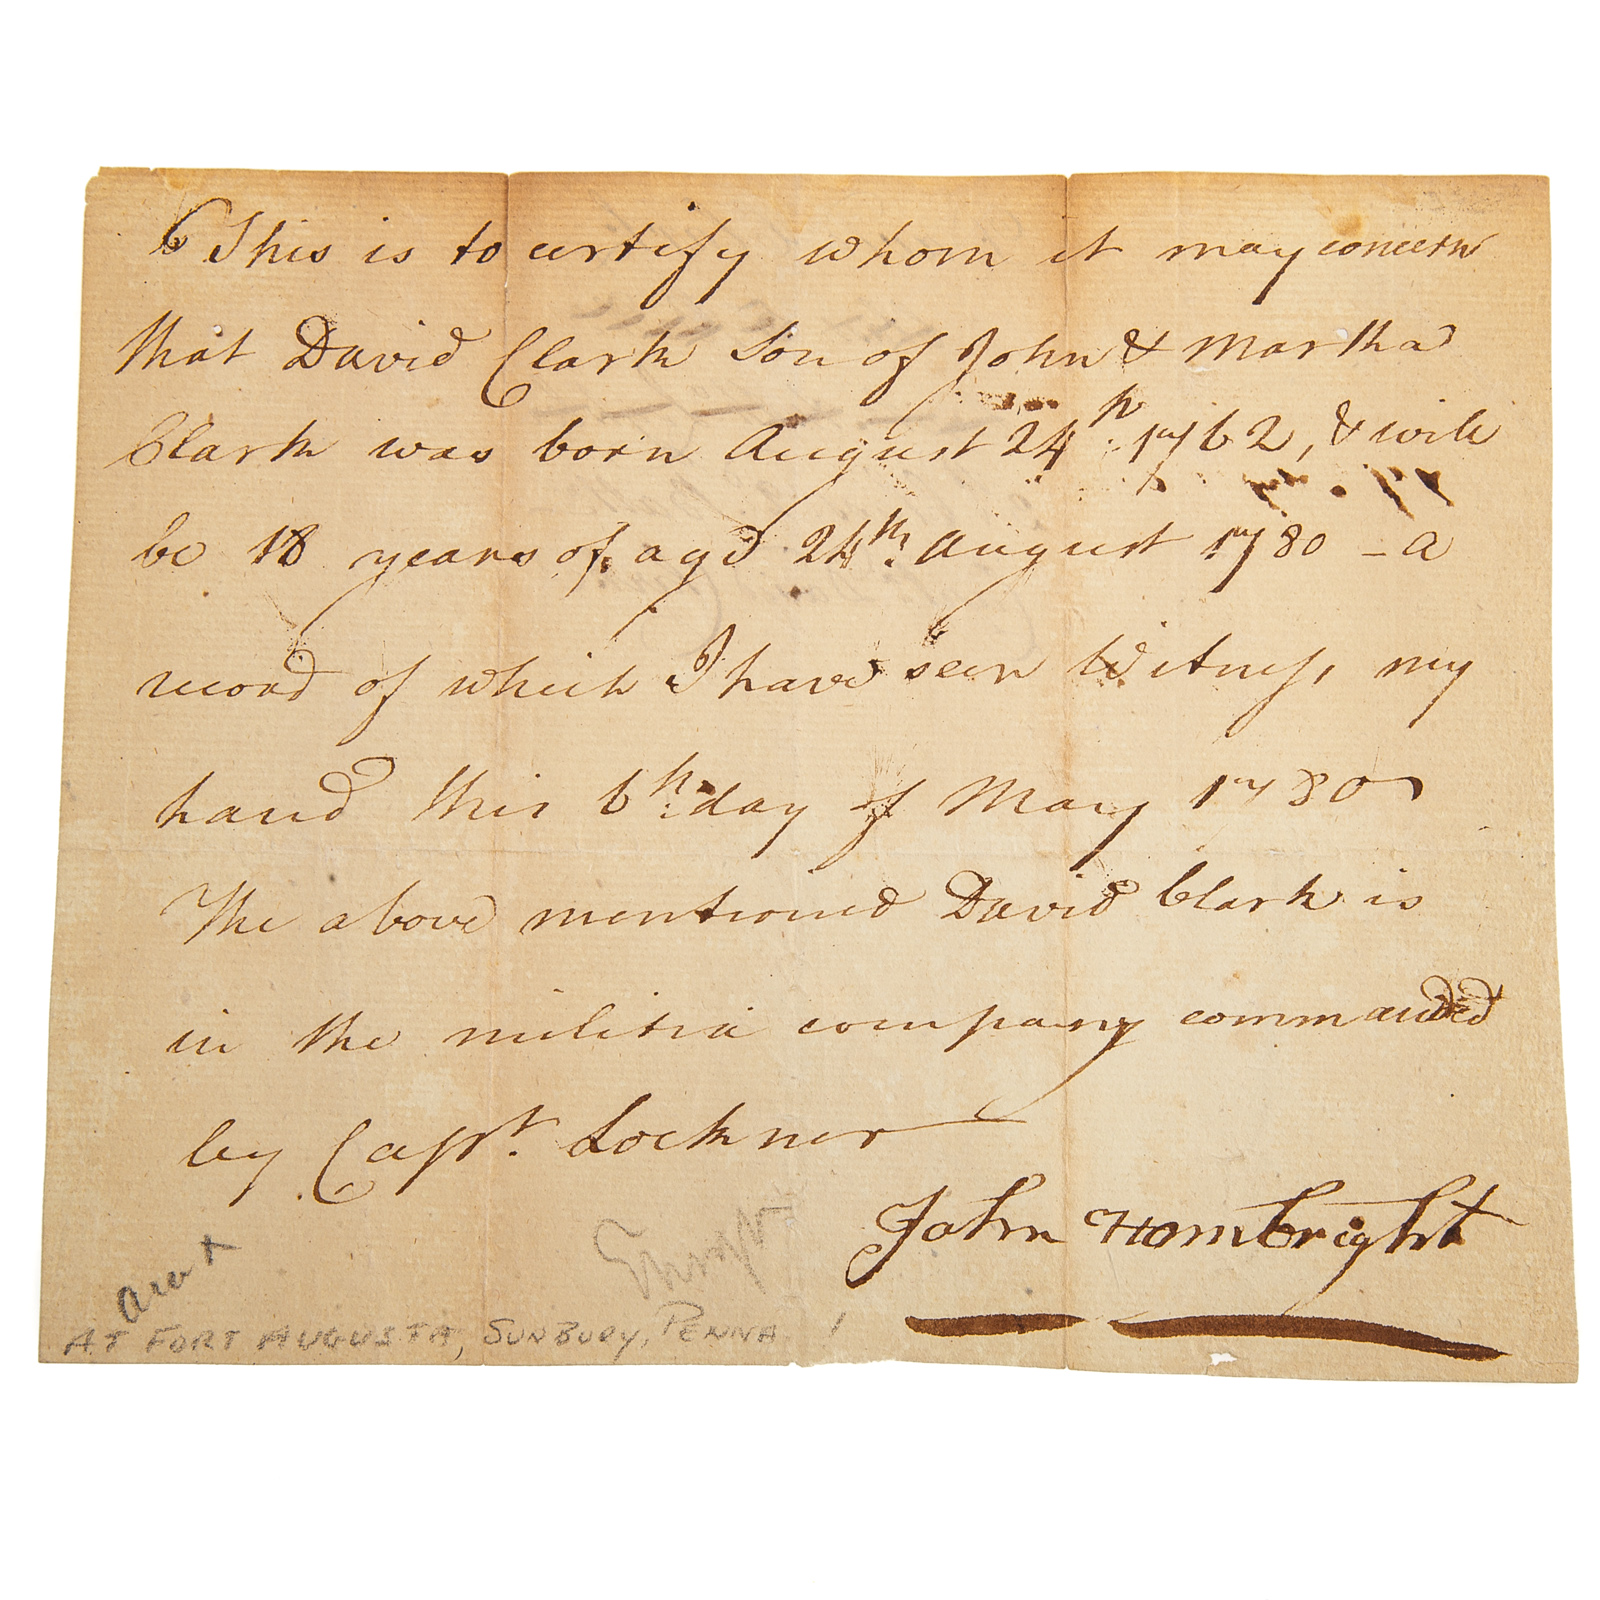 This is to certify whom it may concern
that David Clark Son of John & Martha
Clark was born August 24th 1762, & will
be 18 years of age 24th August 1780 – a
record of which I have seen Witness, my
hand this 6th day of May 1780
The above mentioned David Clark is
in the militia company commanded
by Capt. Lockner
John Hambright
AT FORT AUGUSTA, SUNBURY, PENNA